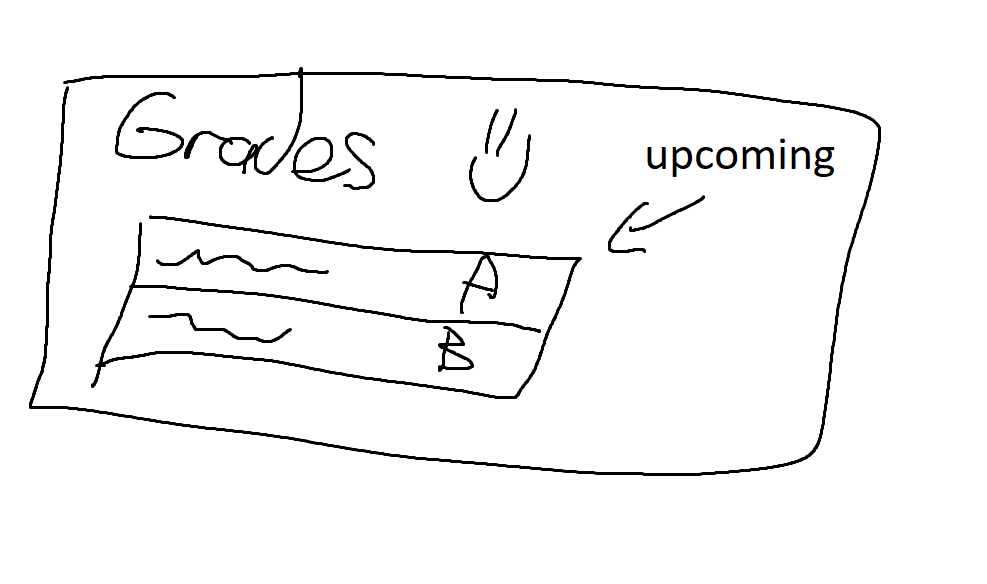 Grades
upcoming
A
B